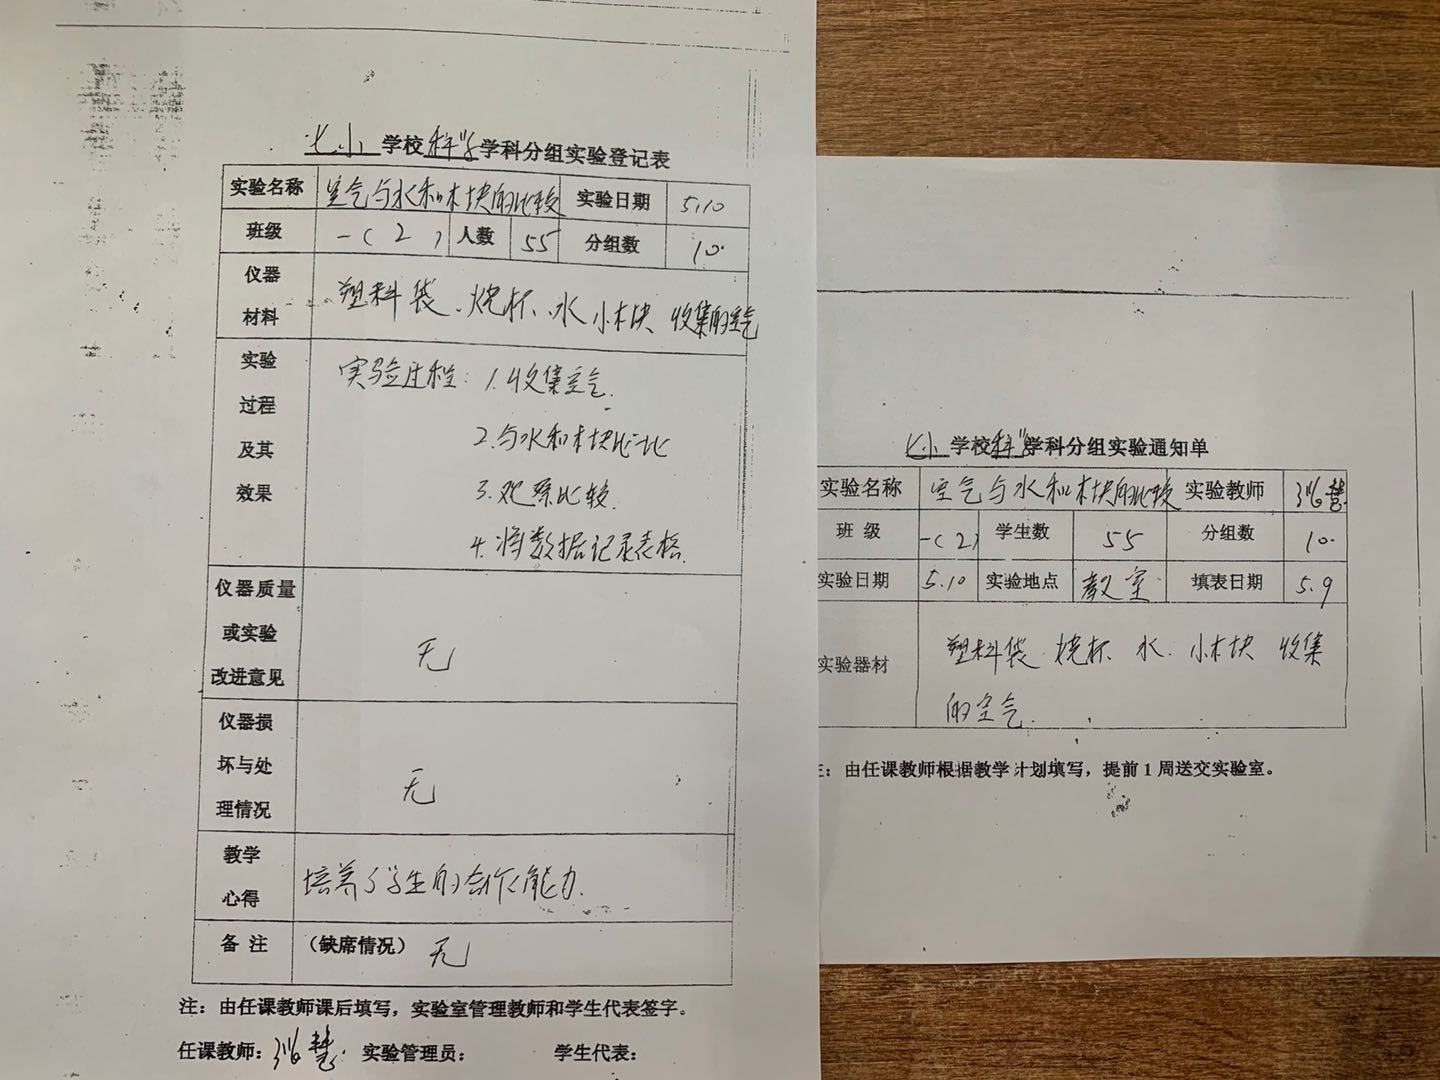 七小学校科学学科分组实验登记表
实验名称 空气与水和木块的比较 实验日期 5.10
班级 一(2) 人数 55 分组数 10.
仪器材料 塑料袋、烧杯、水、小木块 收集的空气
实验过程及其效果 实验过程: 1.收集空气.
2.与水和木块比一比
3.观察比较.
4.将数据记录表格.
仪器质量或实验改进意见 无
仪器损坏与处理情况 无
教学心得 培养了学生的合作能力.
备注 (缺席情况) 无
注：由任课教师课后填写，实验室管理教师和学生代表签字。
任课教师： 慧 实验管理员： 学生代表：
七小学校科学学科分组实验通知单
实验名称 空气与水和木块的比较 实验教师 慧
班 级 一(2) 学生数 55 分组数 10.
实验日期 5.10 实验地点 教室 填表日期 5.9
实验器材 塑料袋 烧杯 水、小木块 收集
的空气.
注：由任课教师根据教学计划填写，提前1周送交实验室。